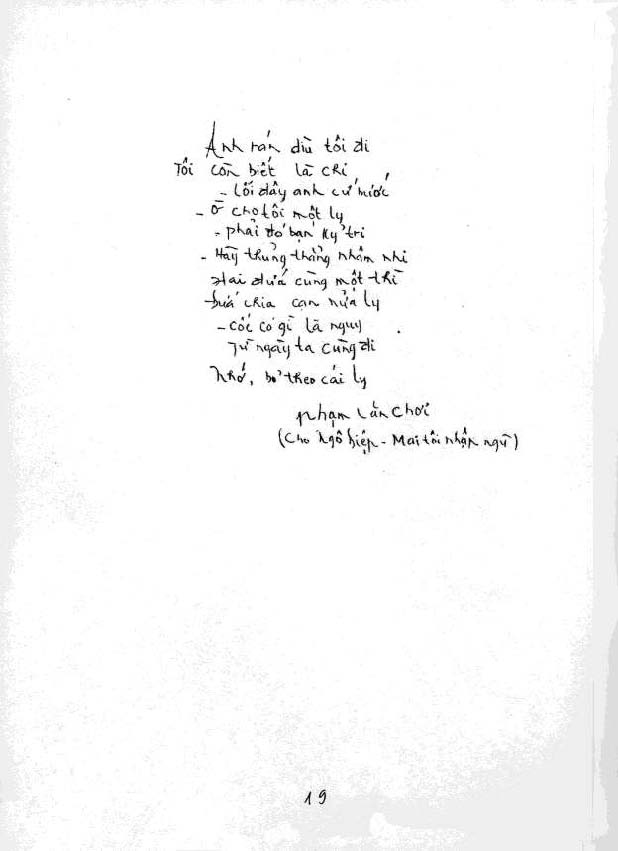 Anh rán dìu tôi đi
Tôi còn biết là chi
- Lối đây anh cứ bước
- Ờ cho tôi một ly
- phải đó bạn kỳ tri
- Hãy thủng thẳng nhâm nhi
Hai đứa cùng một thì
Đứa chia cạn nửa ly
- Cốc có gì là nguy
Từ ngày ta cùng đi
Nhớ, bỏ theo cái ly
phạm văn chơi
(Cho Ngô biện - Mai tôi nhập ngũ)
19